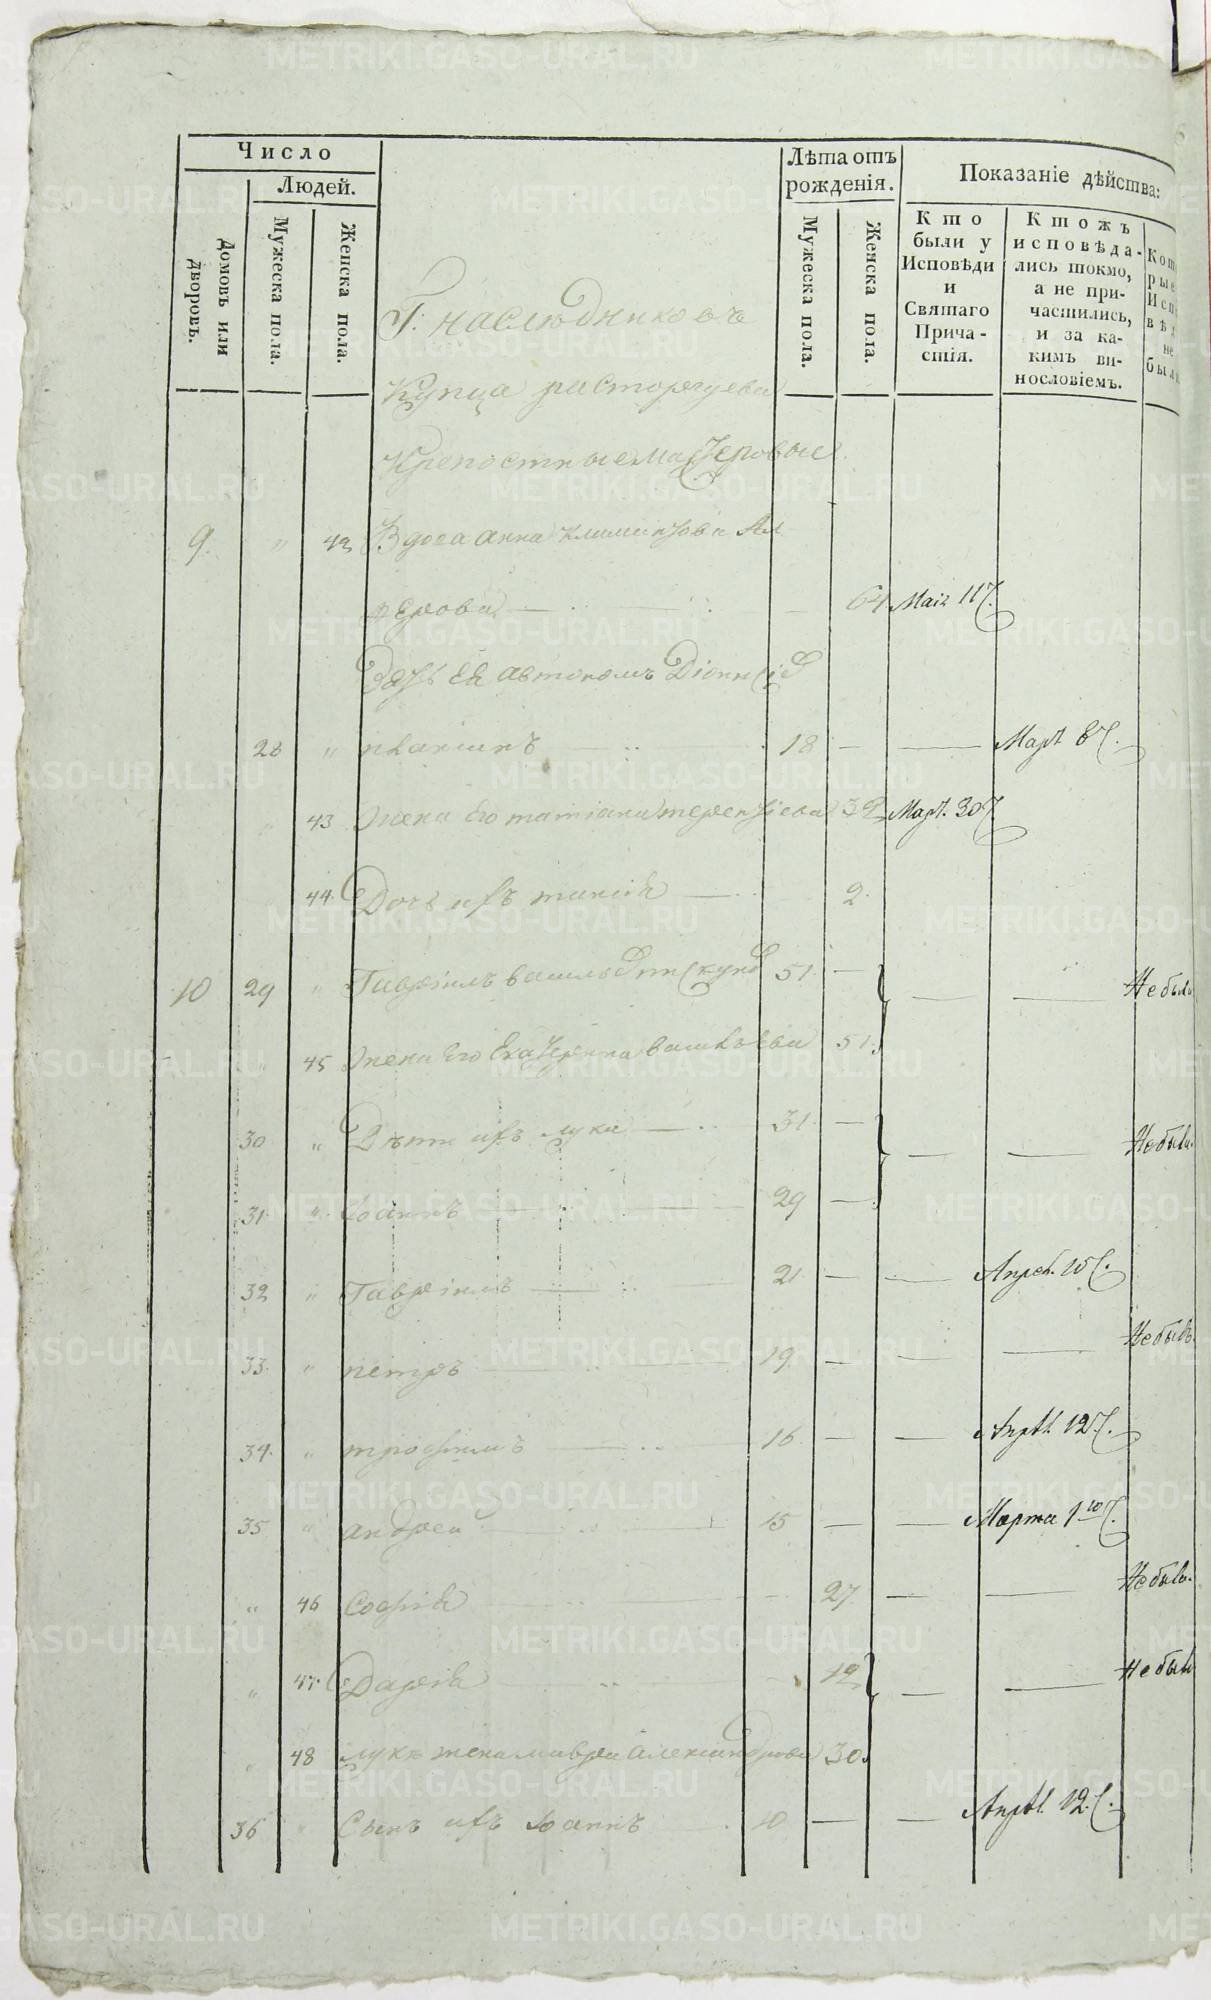 Число
Людей.
Домовъ или дворовъ.
Мужеска пола.
Женска пола.
Лѣта отъ рожденія.
Мужеска пола.
Женска пола.
Показаніе дѣйства:
Кто были у Исповѣди и Святаго Прича-стія.
Ктожъ исповѣда-лись токмо, а не при-частились, и за ка-кимъ ви-нословіемъ.
Г: наслѣдниковъ
Купца расторгуева
Крепостные мастеровые
9. " 42 Вдова анна климинтова Ал
ферова — 64 Маія 11
Зять Ея автономъ Діонисіе
28 " 18 — — Март 8
" 43 Жена Его татіана терентіева 32 Март. 30
44. Дочь ихъ таисія — 2.
10 29 " Гавріилъ василье 51. — — — Не были
45 Жена Его Екатерина васильева 51.
30 " Дѣти ихъ лука — 31. — — — Не были.
31. " Іоаннъ — 29 —
32 " Гавріилъ — 21 — — Апрел. 10
33. " петръ — 19. — — — Не былъ.
34. " трофимъ — 16 — — Апрел. 12
35 " андреи — 15 — — Марта 1
" 46 Софія — 27 — — Не была.
" 47. Дарія 12 — — Не были
" 48 луки жена мавра Александрова 30.
36 " Сынъ ихъ Іоаннъ 10 — — Апрел. 12
METRIKI.GASO-URAL.RU